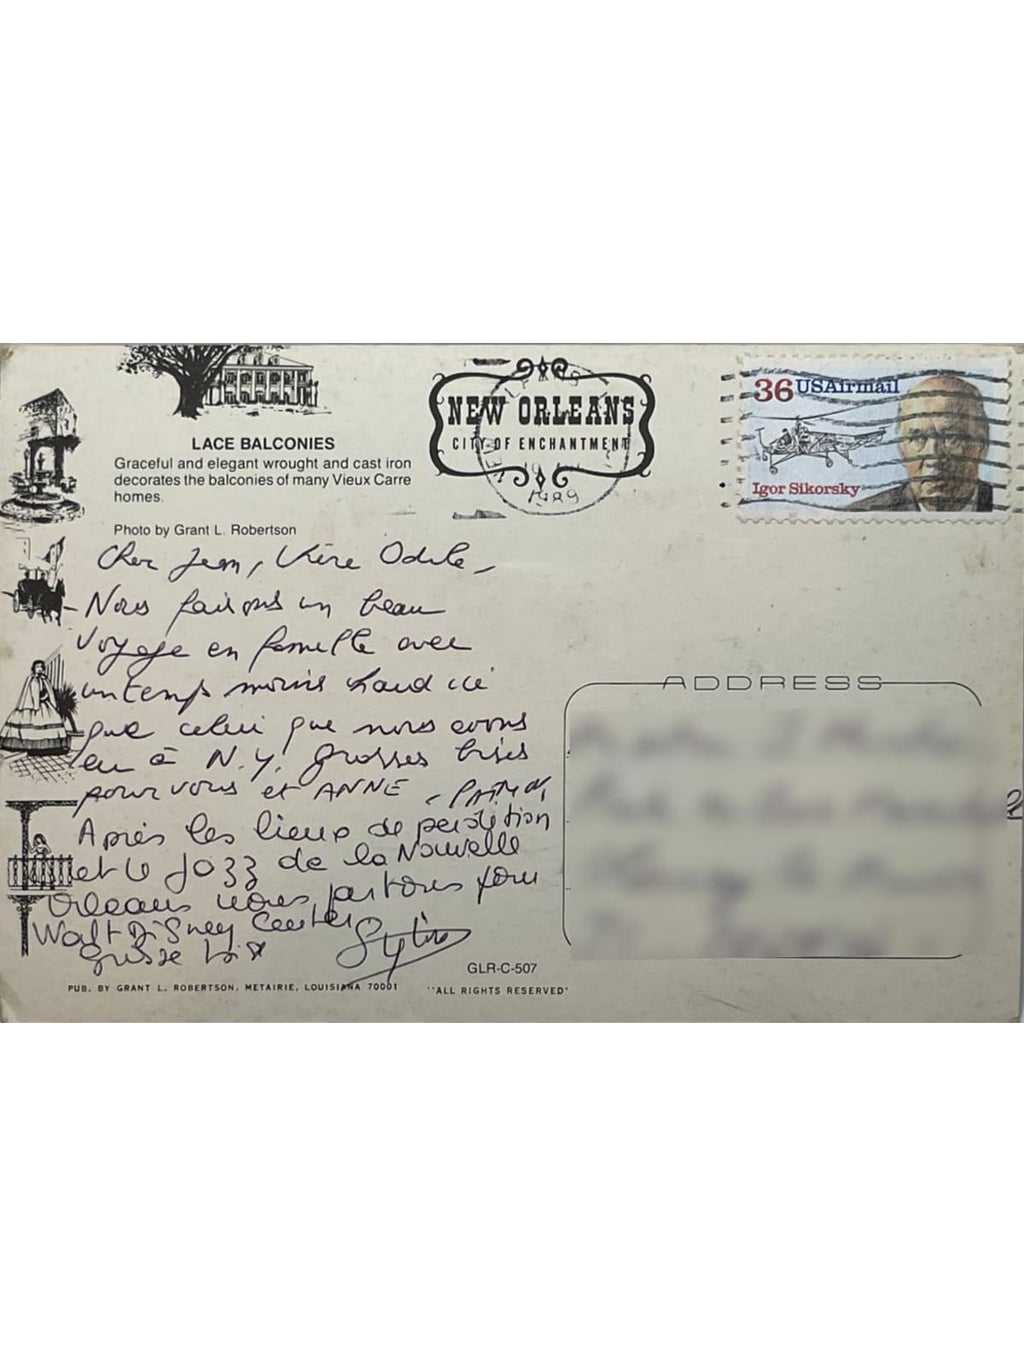 LACE BALCONIES
Graceful and elegant wrought and cast iron
decorates the balconies of many Vieux Carre
homes.
Photo by Grant L. Robertson
NEW ORLEANS
CITY OF ENCHANTMENT
1989
36 USAirmail
Igor Sikorsky
Cher Jean, Chère Odile,
Nous faisons un beau
voyage en famille avec
un temps moins chaud ici
que celui que nous avons
eu à N.Y. Grosses bises
pour vous et ANNE
Après les lieux de perdition
et le Jazz de la Nouvelle
Orleans nous partons pour
Walt Disney Center
Grosse bise Sylvie
ADDRESS
GLR-C-507
PUB. BY GRANT L. ROBERTSON, METAIRIE, LOUISIANA 70001 "ALL RIGHTS RESERVED"